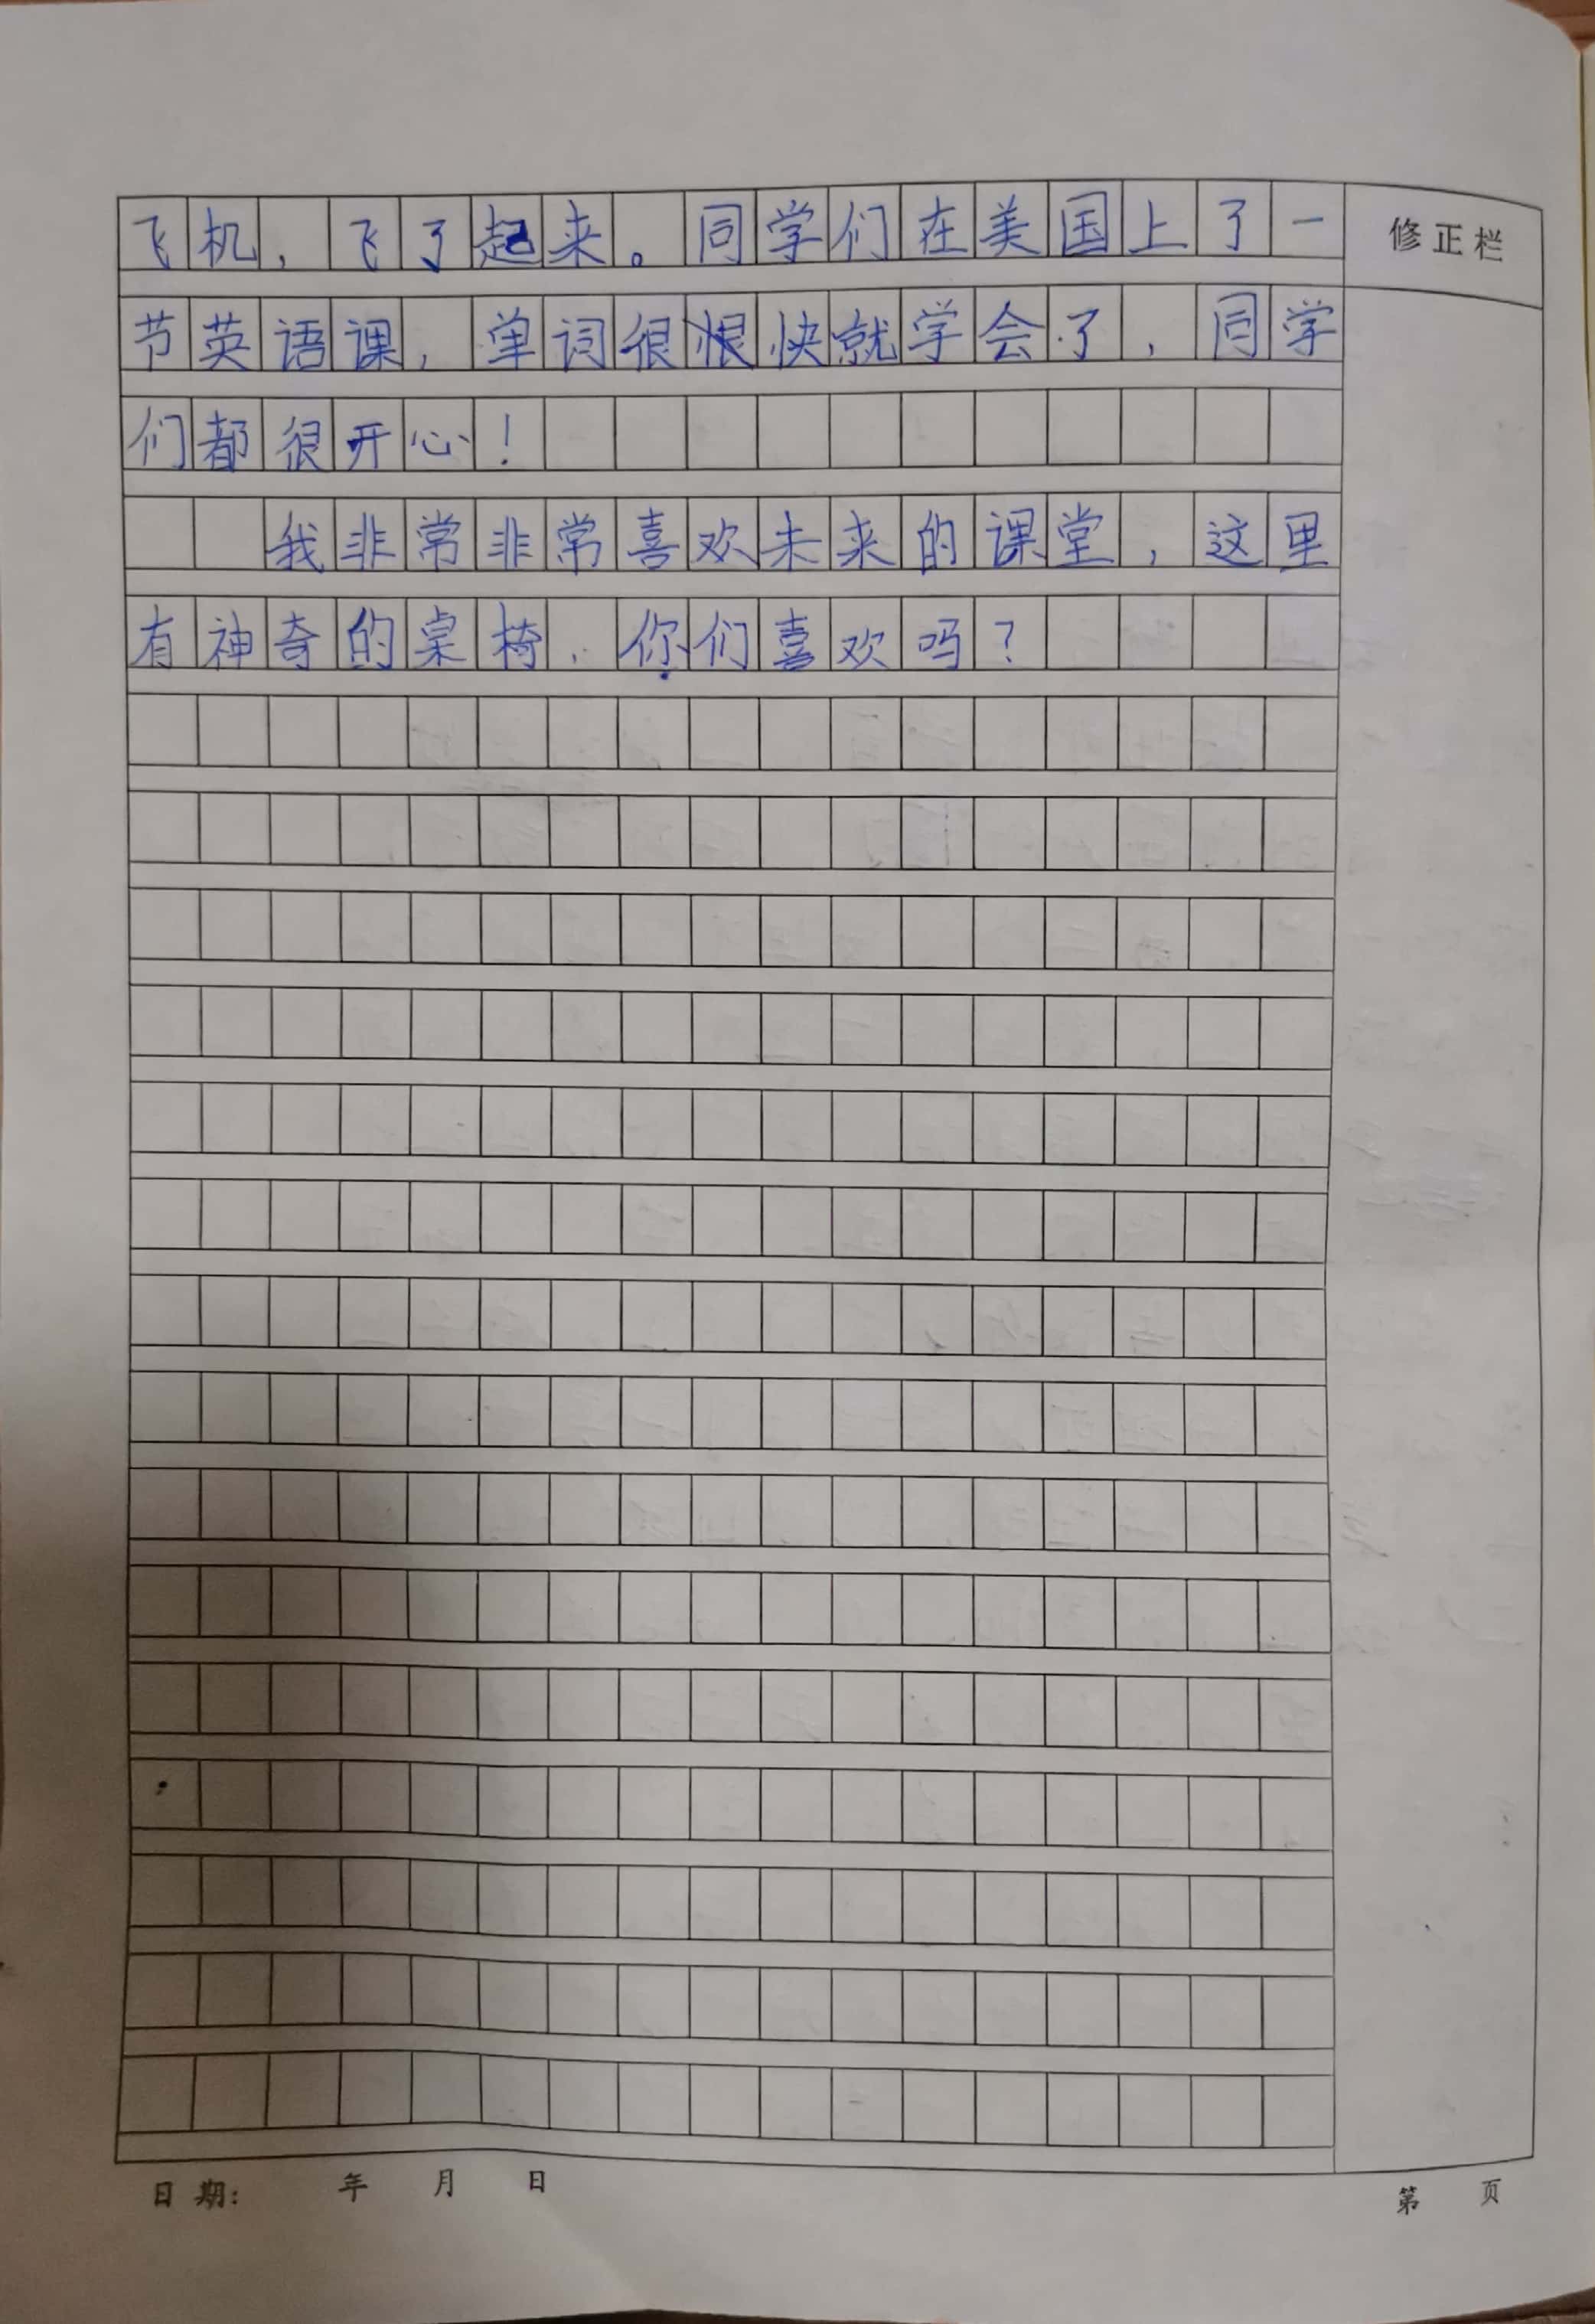 飞机，飞了起来。同学们在美国上了一
修正栏
节英语课，单词很很快就学会了，同学
们都很开心！
我非常非常喜欢未来的课堂，这里
有神奇的桌椅，你们喜欢吗？
日期： 年 月 日
第 页